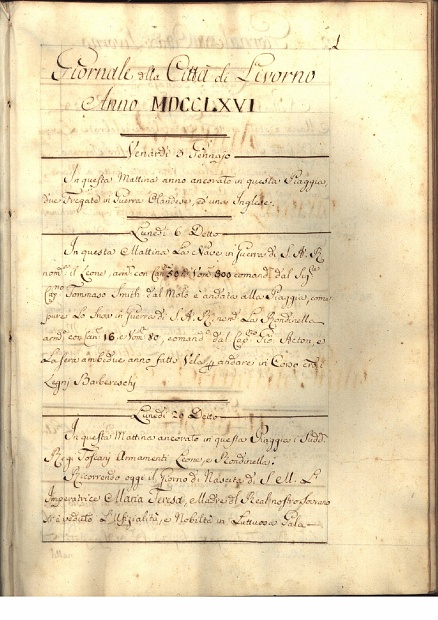 1
Giornale della Città di Livorno
Anno MDCCLXVI
Venardi 3 Gennajo
In questa Mattina anno ancorato in questa Piaggia
due Fregate in Guerra Olandese, e una Inglese.
Lunedi 6 Detto
In questa Mattina La Nave in Guerra di S. A. R.
il Leone, con 300 comand. dal
Tommaso Smith dal Molo è andata alla Piaggia, come
pure Lo Snow in Guerra di S. A. R. nom. La Rondinella
con 16. e 80, comand. dal Cap. Gio. Acton, e
La sera ambidue anno fatto Vela andare in Corso
Legni Barbereschi
Lunedi 20 Detto
In questa Mattina ancorato in questa Piaggia i Sudd.
Regj Toscanj Armamenti Leone, e Rondinella.
Ricorrendo oggi il Giorno di Nascita di S. M. L'
Imperatrice Maria Teresa, Madre del Real nostro Sovrano
si è veduto L'Ufizialità, e Nobiltà in Gala